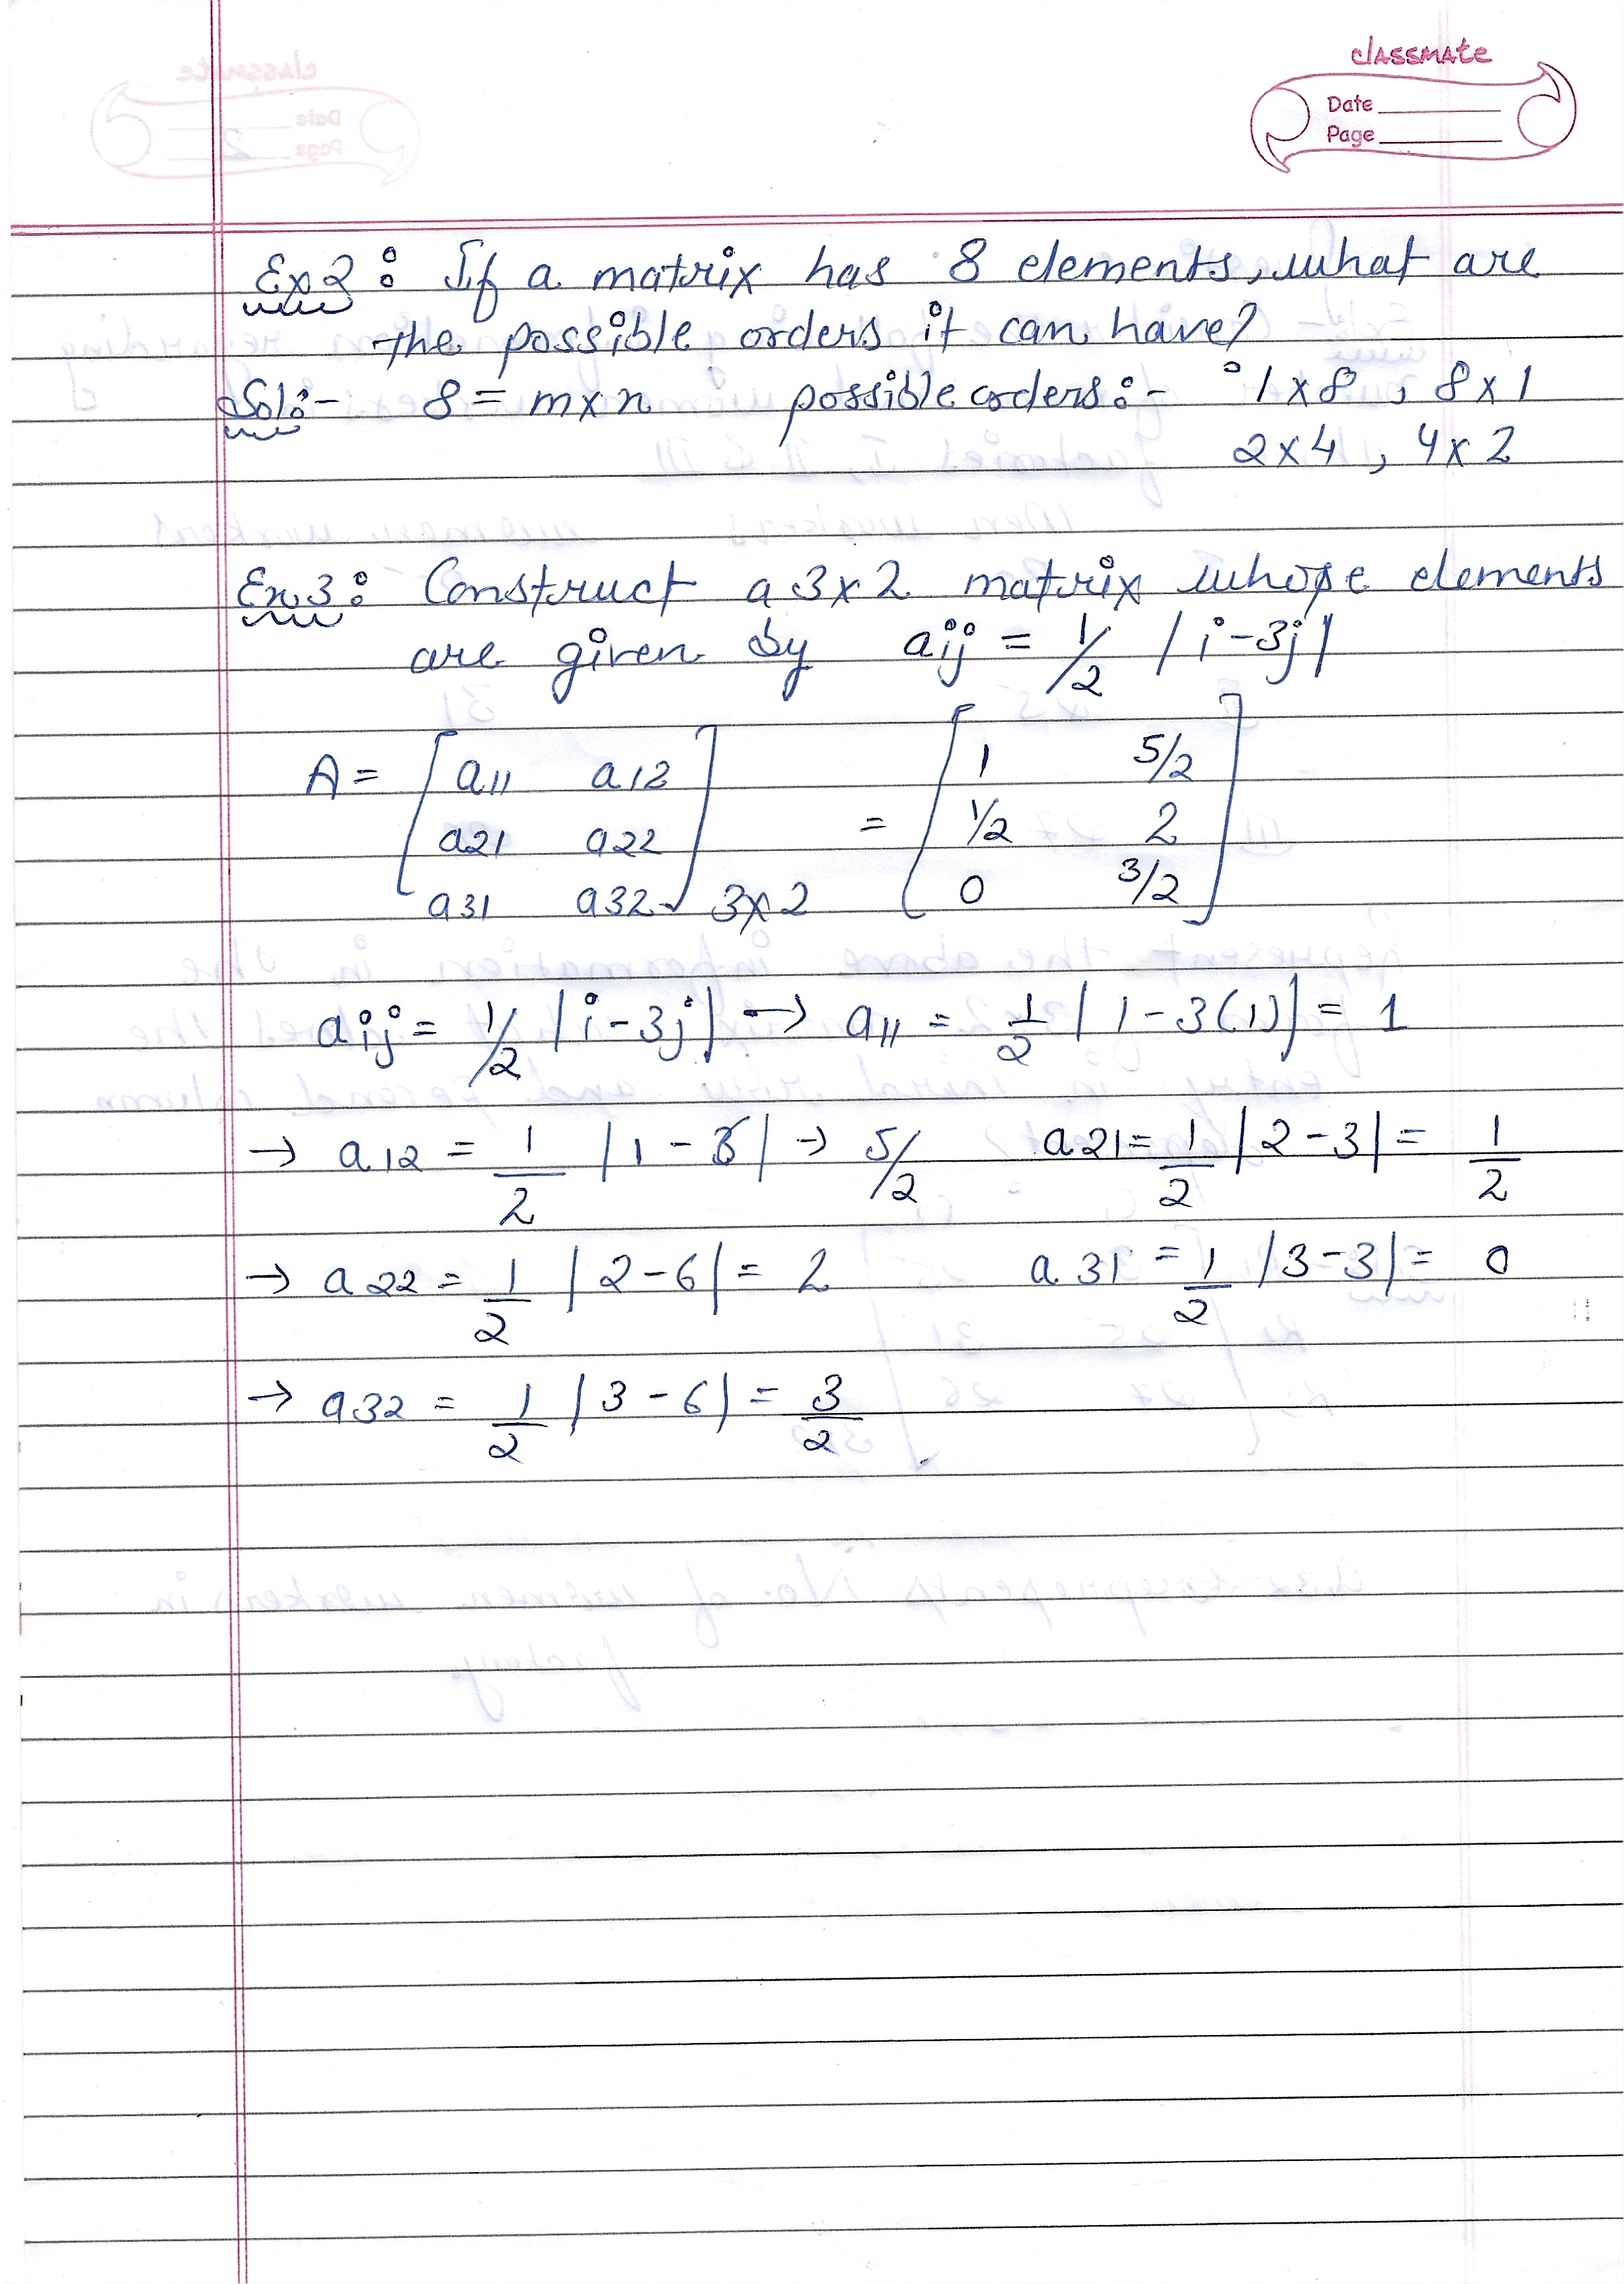 classmate
Date
Page
Ex 2: If a matrix has 8 elements, what are
the possible orders it can have?
Sol:- 8 = m×n possible orders:- 1×8, 8×1
2×4, 4×2
Ex 3: Construct a 3×2 matrix whose elements
are given by aij = 1/2 |i-3j|
A = [a11 a12 = [1 5/2
a21 a22 1/2 2
a31 a32] 3×2 0 3/2]
aij = 1/2 |i-3j| → a11 = 1/2 |1-3(1)| = 1
→ a12 = 1/2 |1-6| → 5/2 a21 = 1/2 |2-3| = 1/2
→ a22 = 1/2 |2-6| = 2 a31 = 1/2 |3-3| = 0
→ a32 = 1/2 |3-6| = 3/2